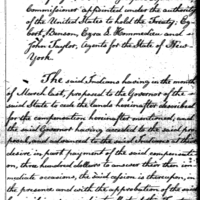 Commissioner appointed under the authority
of the United States to hold the Treaty; Eg-
bert, Benson, Ezra L. Hommedieu and
John Taylor, Agents for the State of New
York.
The said Indians having in the month
of March last, proposed to the Governor of the
said State to cede the lands hereinafter described
for the compensation hereinafter mentioned, and
the said Governor having acceded to the said pro-
posal, and advanced to the said Indians at their
desire in part payment of the said compensati-
on, three hundred dollars to answer their then im-
mediate occasions, the said cession is thereupon, in
the presence and with the approbation of the said